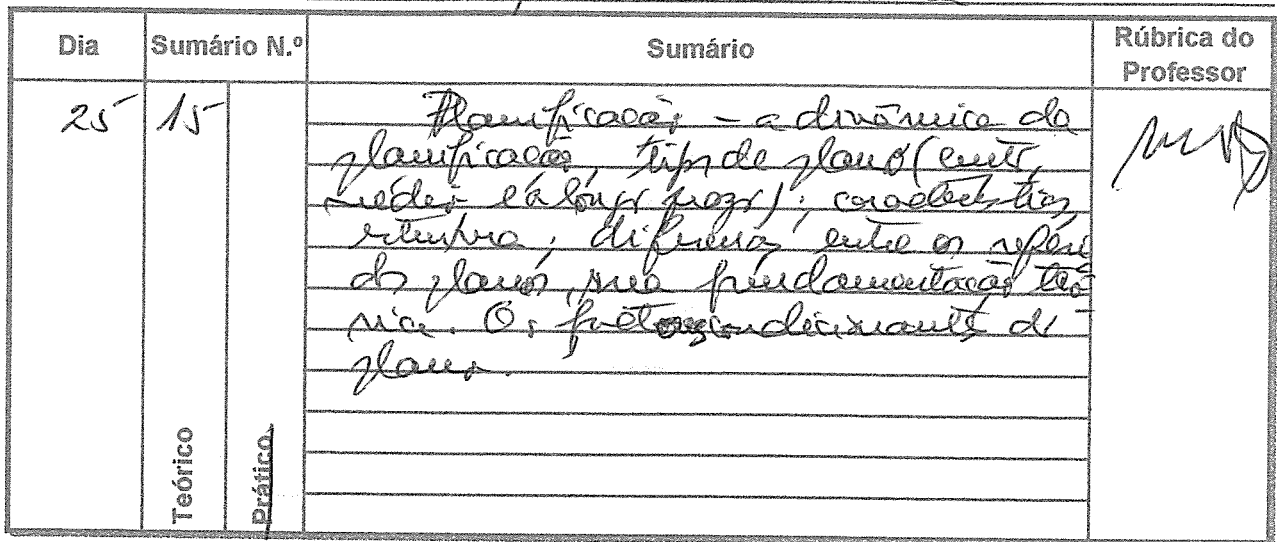 Dia Sumário N.º Sumário Rúbrica do Professor
25 15 Planificação - a dinâmica da
planificação, tipos de planos (curto,
médio e a longo prazo); características,
estrutura, diferenças entre os referi
dos planos, sua fundamentação teó
rica. Os factores condicionantes do
plano.
Teórico
Prático